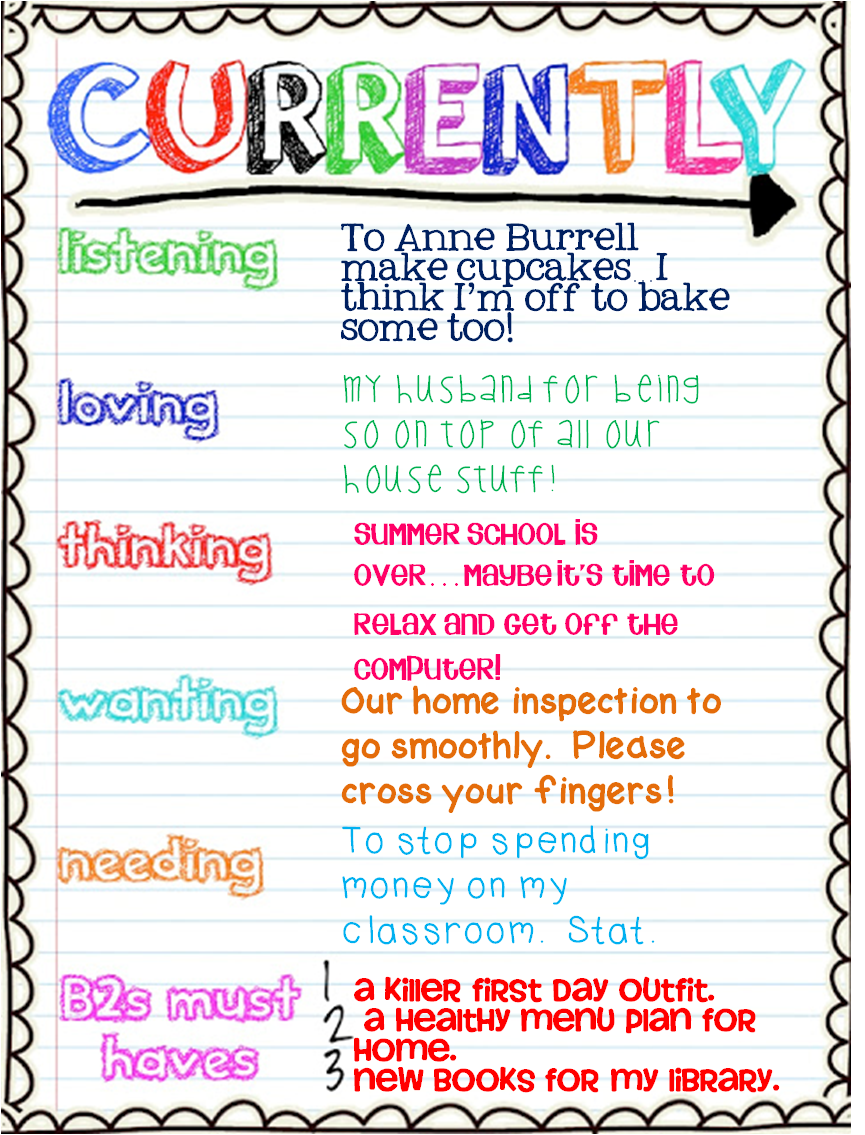 CURRENTLY
listening
To Anne Burrell
make cupcakes...I
think I'm off to bake
some too!
loving
my husband for being
so on top of all our
house stuff!
thinking
Summer school is
over...maybe it's time to
relax and get off the
computer!
wanting
Our home inspection to
go smoothly. Please
cross your fingers!
needing
To stop spending
money on my
classroom. Stat.
B2s must
haves
1 a killer first day outfit.
2 a healthy menu plan for
home.
3 new books for my library.